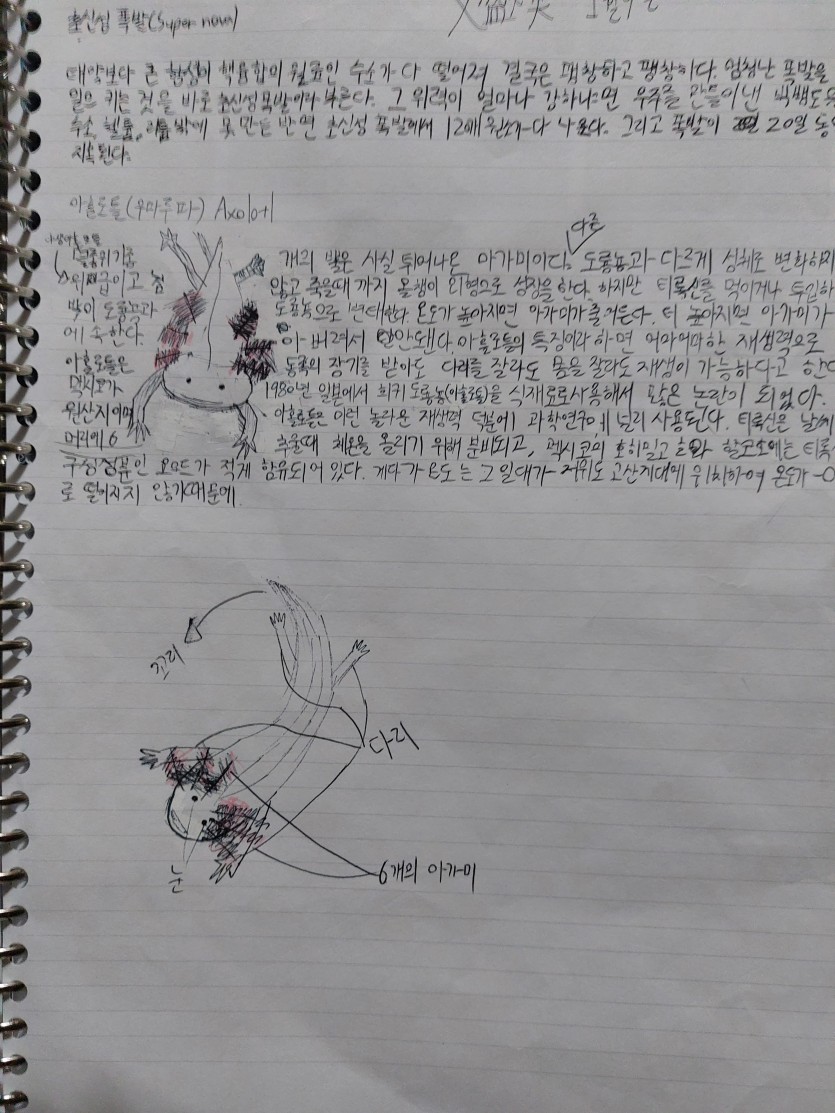 초신성 폭발(Super nova)
태양보다 큰 항성이 핵융합의 원료인 수소가 다 떨어져 결국은 팽창하고 팽창하다. 엄청난 폭발을
일으 키는 것을 바로 초신성 폭발이라 부른다. 그 위력이 얼마나 강하냐면 우주를 만들어낸 빅뱅도
수소, 헬륨, 리튬 밖에 못 만든 반면 초신성 폭발에서 나온다. 그리고 폭발이 20일
지속된다.
아홀로틀(우파루파) Axolotl
멸종위기종
위급이고 점
박이 도롱뇽과
에 속한다.
아홀로틀은
멕시코가
원산지이며
머리에 6
다른
개의 뿔은 사실 튀어나온 아가미이다. 도롱뇽과 다르게 성체로 변화하지
않고 죽을때 까지 올챙이 외형으로 성장을 한다. 하지만 티록신을 먹이거나 투입하
도롱뇽으로 변태한다. 온도가 높아지면 아가미가 줄어든다. 더 높아지면 아가미가
아 버려서 안된다. 아홀로틀의 특징이라 하면 어마어마한 재생력으로
동족의 장기를 받아도 다리를 잘라도 몸을 잘라도 재생이 가능하다고 한다
1980년 일본에서 희귀 도롱뇽(아홀로틀)을 식재료로 사용해서 많은 논란이 되었다.
아홀로틀은 이런 놀라운 재생력 덕분에 과학연구에 널리 사용된다. 티록신은 날씨
추울때 체온을 올리기 위해 분비되고, 멕시코의 호히밀코 호와 할코호에는 티록
구성성분인 요오드가 적게 함유되어 있다. 게다가 온도는 그 일대가 저위도 고산지대에 위치하여 온도가
로 떨어지지 않기 때문에.
꼬리
다리
6개의 아가미
눈